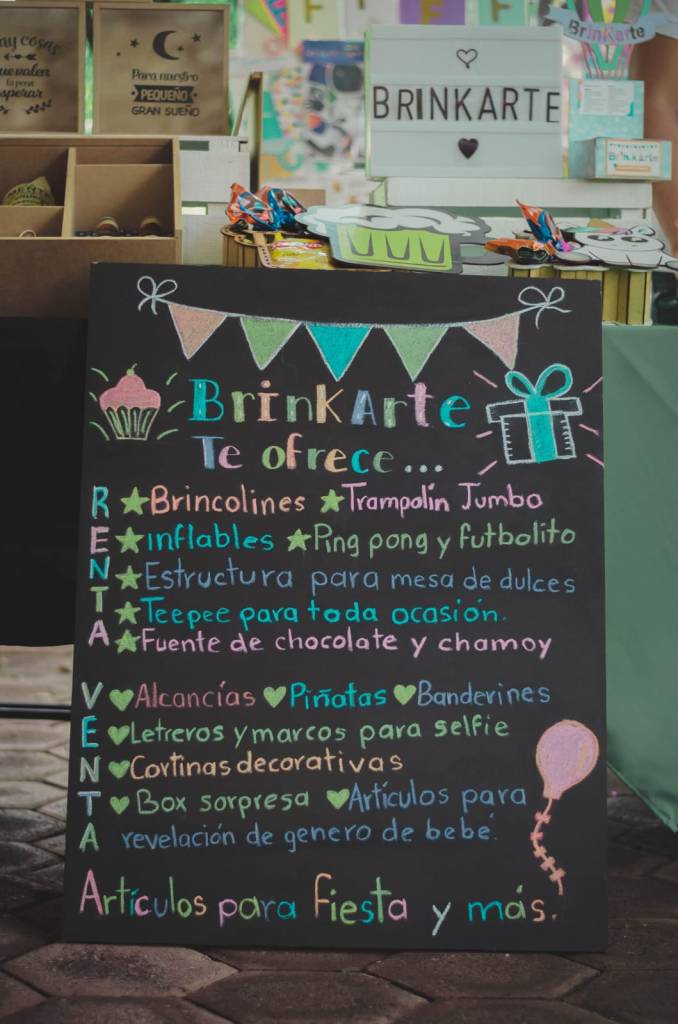 ay cosas
ue valen
la pena
esperar
Para nuestro
PEQUEÑO
GRAN SUEÑO
BRINKARTE
BrinKarte
BrinKarte
BrinkArte
Te ofrece...
RENTA
★Brincolines ★Trampolín Jumbo
★inflables ★Ping pong y futbolito
★Estructura para mesa de dulces
★Teepee para toda ocasión.
★Fuente de chocolate y chamoy
VENTA
♥Alcancías ♥Piñatas ♥Banderines
♥Letreros y marcos para selfie
♥Cortinas decorativas
♥Box sorpresa ♥Artículos para
revelación de genero de bebé.
Artículos para fiesta y más.